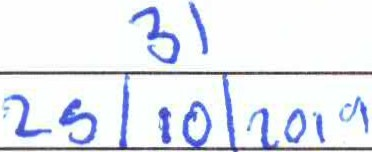 31
25/10/2019